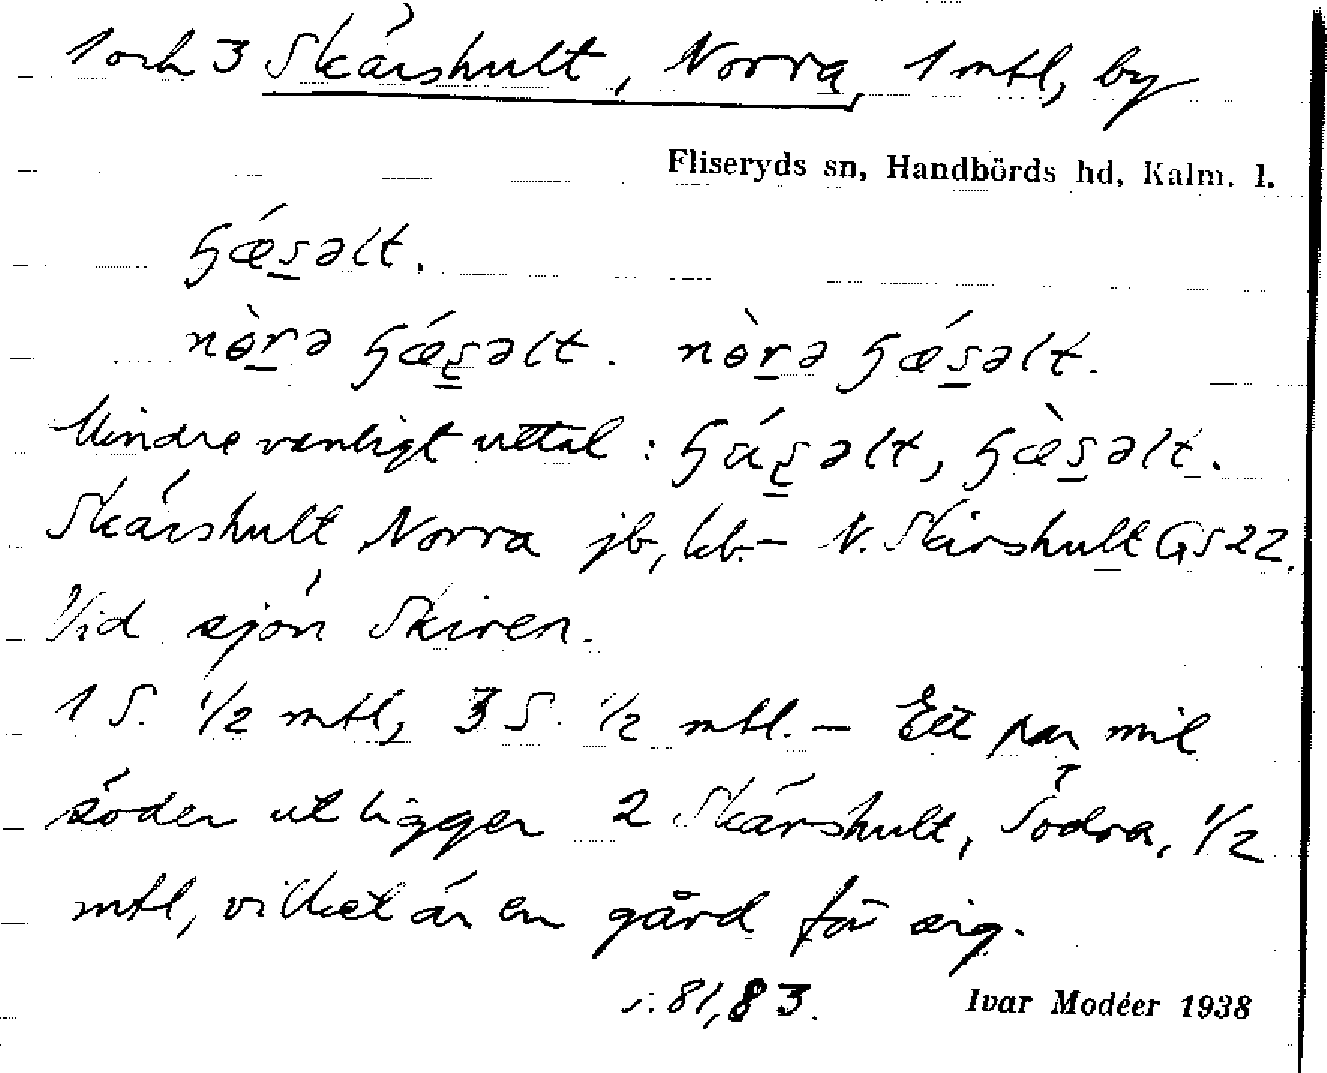 1 och 3 Skärshult, Norra, 1 mtl, by
Fliseryds sn, Handbörds hd, Kalm. l.
ɧǽs̲əlt.
nɵ̀r̲ə ɧǽs̲əlt. nɵ̀r̲ə ɧǽs̲əlt.
Mindre vanligt uttal: ɧás̲əlt, ɧæ̀s̲əlt.
Skärshult Norra jb, kb. – N. Skirshult GS 22.
Vid sjön Skiren.
1 S. 1/2 mtl, 3 S. 1/2 mtl. – Ett par mil
söder ut ligger 2 Skärshult, Södra, 1/2
mtl, vilket är en gård för sig.
s. 81, 83.
Ivar Modéer 1938